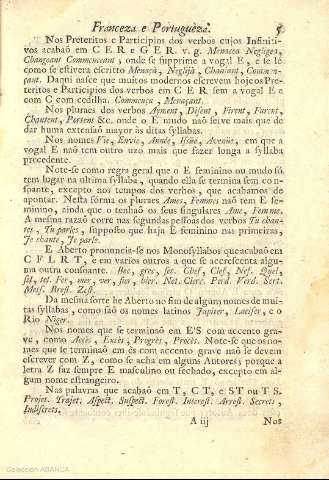 Franceza e Portugueza. 5
Nos Preteritos e Participios dos verbos cujos Infiniti-
vos acabaõ em C E R e G E R. v. g. Menacea Negligea,
Changeant Commenceant, onde se supprime a vogal E, e se le
como se estivera escritto Menaça, Neglija, Chanjant, Commen-
çant. Daqui nasce que muitos modernos escrevem hoje os Pre-
teritos e Participios dos verbos em C E R sem a vogal E e
com C com cedilha. Commença, Menaçant.
Nos pluraes dos verbos Ayment, Disent, Firent, Furent,
Chantent, Portent &c. onde o E mudo naõ serve mais que de
dar huma extensaõ mayor às ditas syllabas.
Nos nomes Vie, Envie, Année, Issüe, Avenüe, em que a
vogal E naõ tem outro uzo mais que fazer longa a syllaba
precedente.
Note-se como regra geral que o E feminino ou mudo só
tem lugar na ultima syllaba, quando ella se termina sem con-
soante, excepto nos tempos dos verbos, que acabamos de
apontar. Nesta fórma os pluraes Ames, Femmes naõ tem E fe-
minino, ainda que o tenhaõ os seus singulares Ame, Femme.
A mesma razaõ corre nas segundas pessoas dos verbos Tu chan-
tes, Tu parles, supposto que haja E feminino nas primeiras
Je chante, Je parle.
E Aberto pronuncia-se nos Monosyllabos que acabaõ em
C F L R T, e em varios outros a que se accrescenta algu-
ma outra consoante. Bec, grec, sec. Chef, Clef, Nef. Quel
sel, tel. Fer, mer, ver, fier, hier. Net. Clerc. Perd. Verd. Sert.
Meif. Brest. Zest.
Da mesma sorte he Aberto no fim de alguns nomes de mui-
tas syllabas, como saõ os nomes latinos Jupiter, Lucifer, e o
Rio Niger.
Nos nomes que se terminaõ em E'S com accento gra-
ve, como Accès, Excès, Progrès, Procès. Note-se que os no-
mes que le terminaõ em és com accento grave naõ se devem
escrever com Z, como se acha em alguns Autores; porque a
letra Z faz sempre E masculino ou fechado, excepto em al-
gum nome estrangeiro.
Nas palavras que acabaõ em T, C T, e S T ou T S.
Projet. Trajet. Aspect. Suspect. Forest. Interest. Arrest. Secrets,
Indiscrets.
A iij Nos
Colección ABANCA